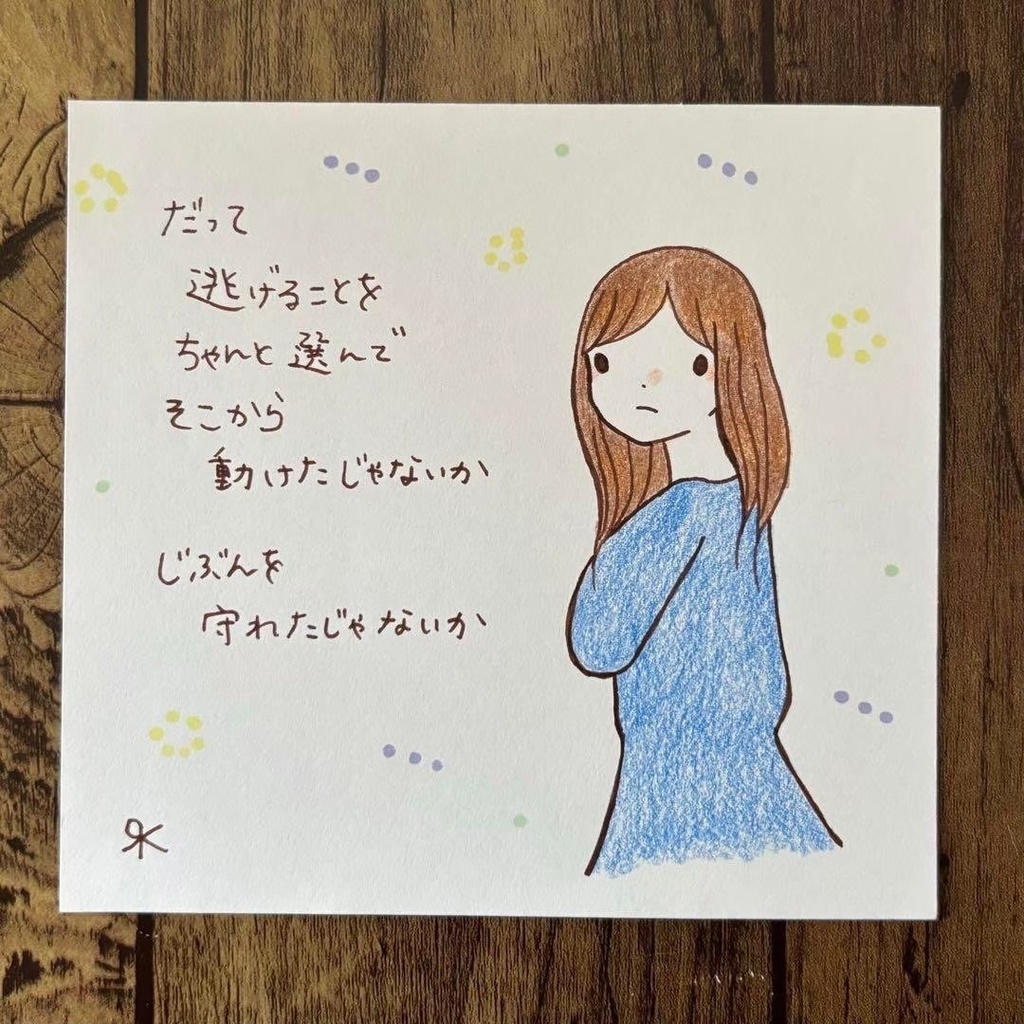 だって
逃げることを
ちゃんと選んで
そこから
動けたじゃないか
じぶんを
守れたじゃないか